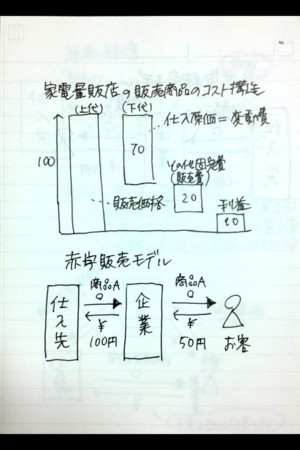 家電量販店の販売商品のコスト構造
(上代) (下代)
仕入原価=変動費
100
70
その他固定費
(販売費)
販売価格
20
利益
10
赤字販売モデル
商品A 商品A
仕入先 企業
¥ ¥
100円 50円 お客